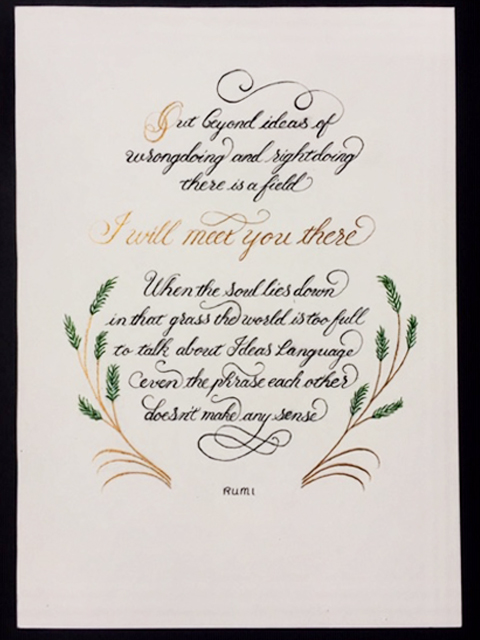 Out beyond ideas of
wrongdoing and rightdoing
there is a field
I will meet you there
When the soul lies down
in that grass the world is too full
to talk about Ideas Language
even the phrase each other
doesn't make any sense
RUMI